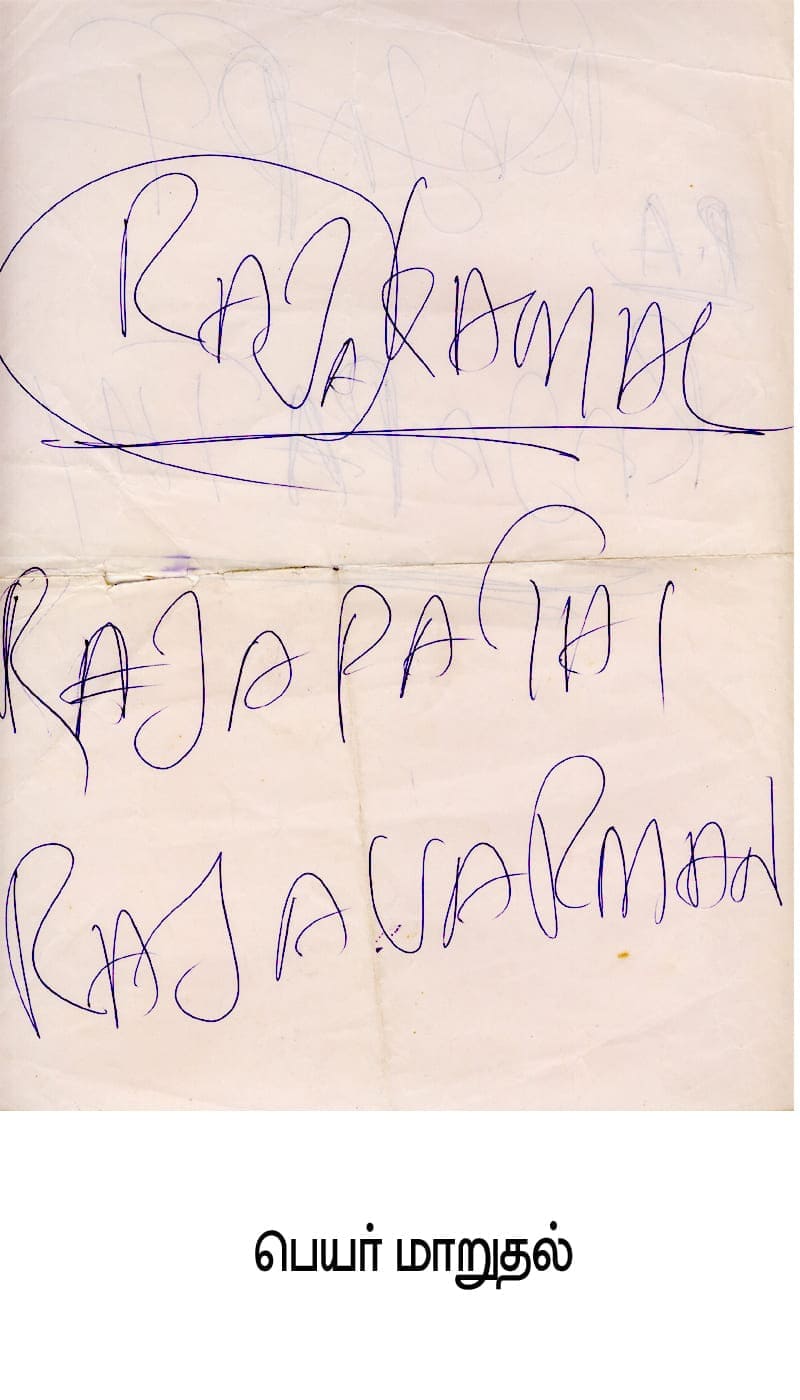 RAJAKAMAL
RAJAPATHI
RAJAVARMAN
பெயர் மாறுதல்